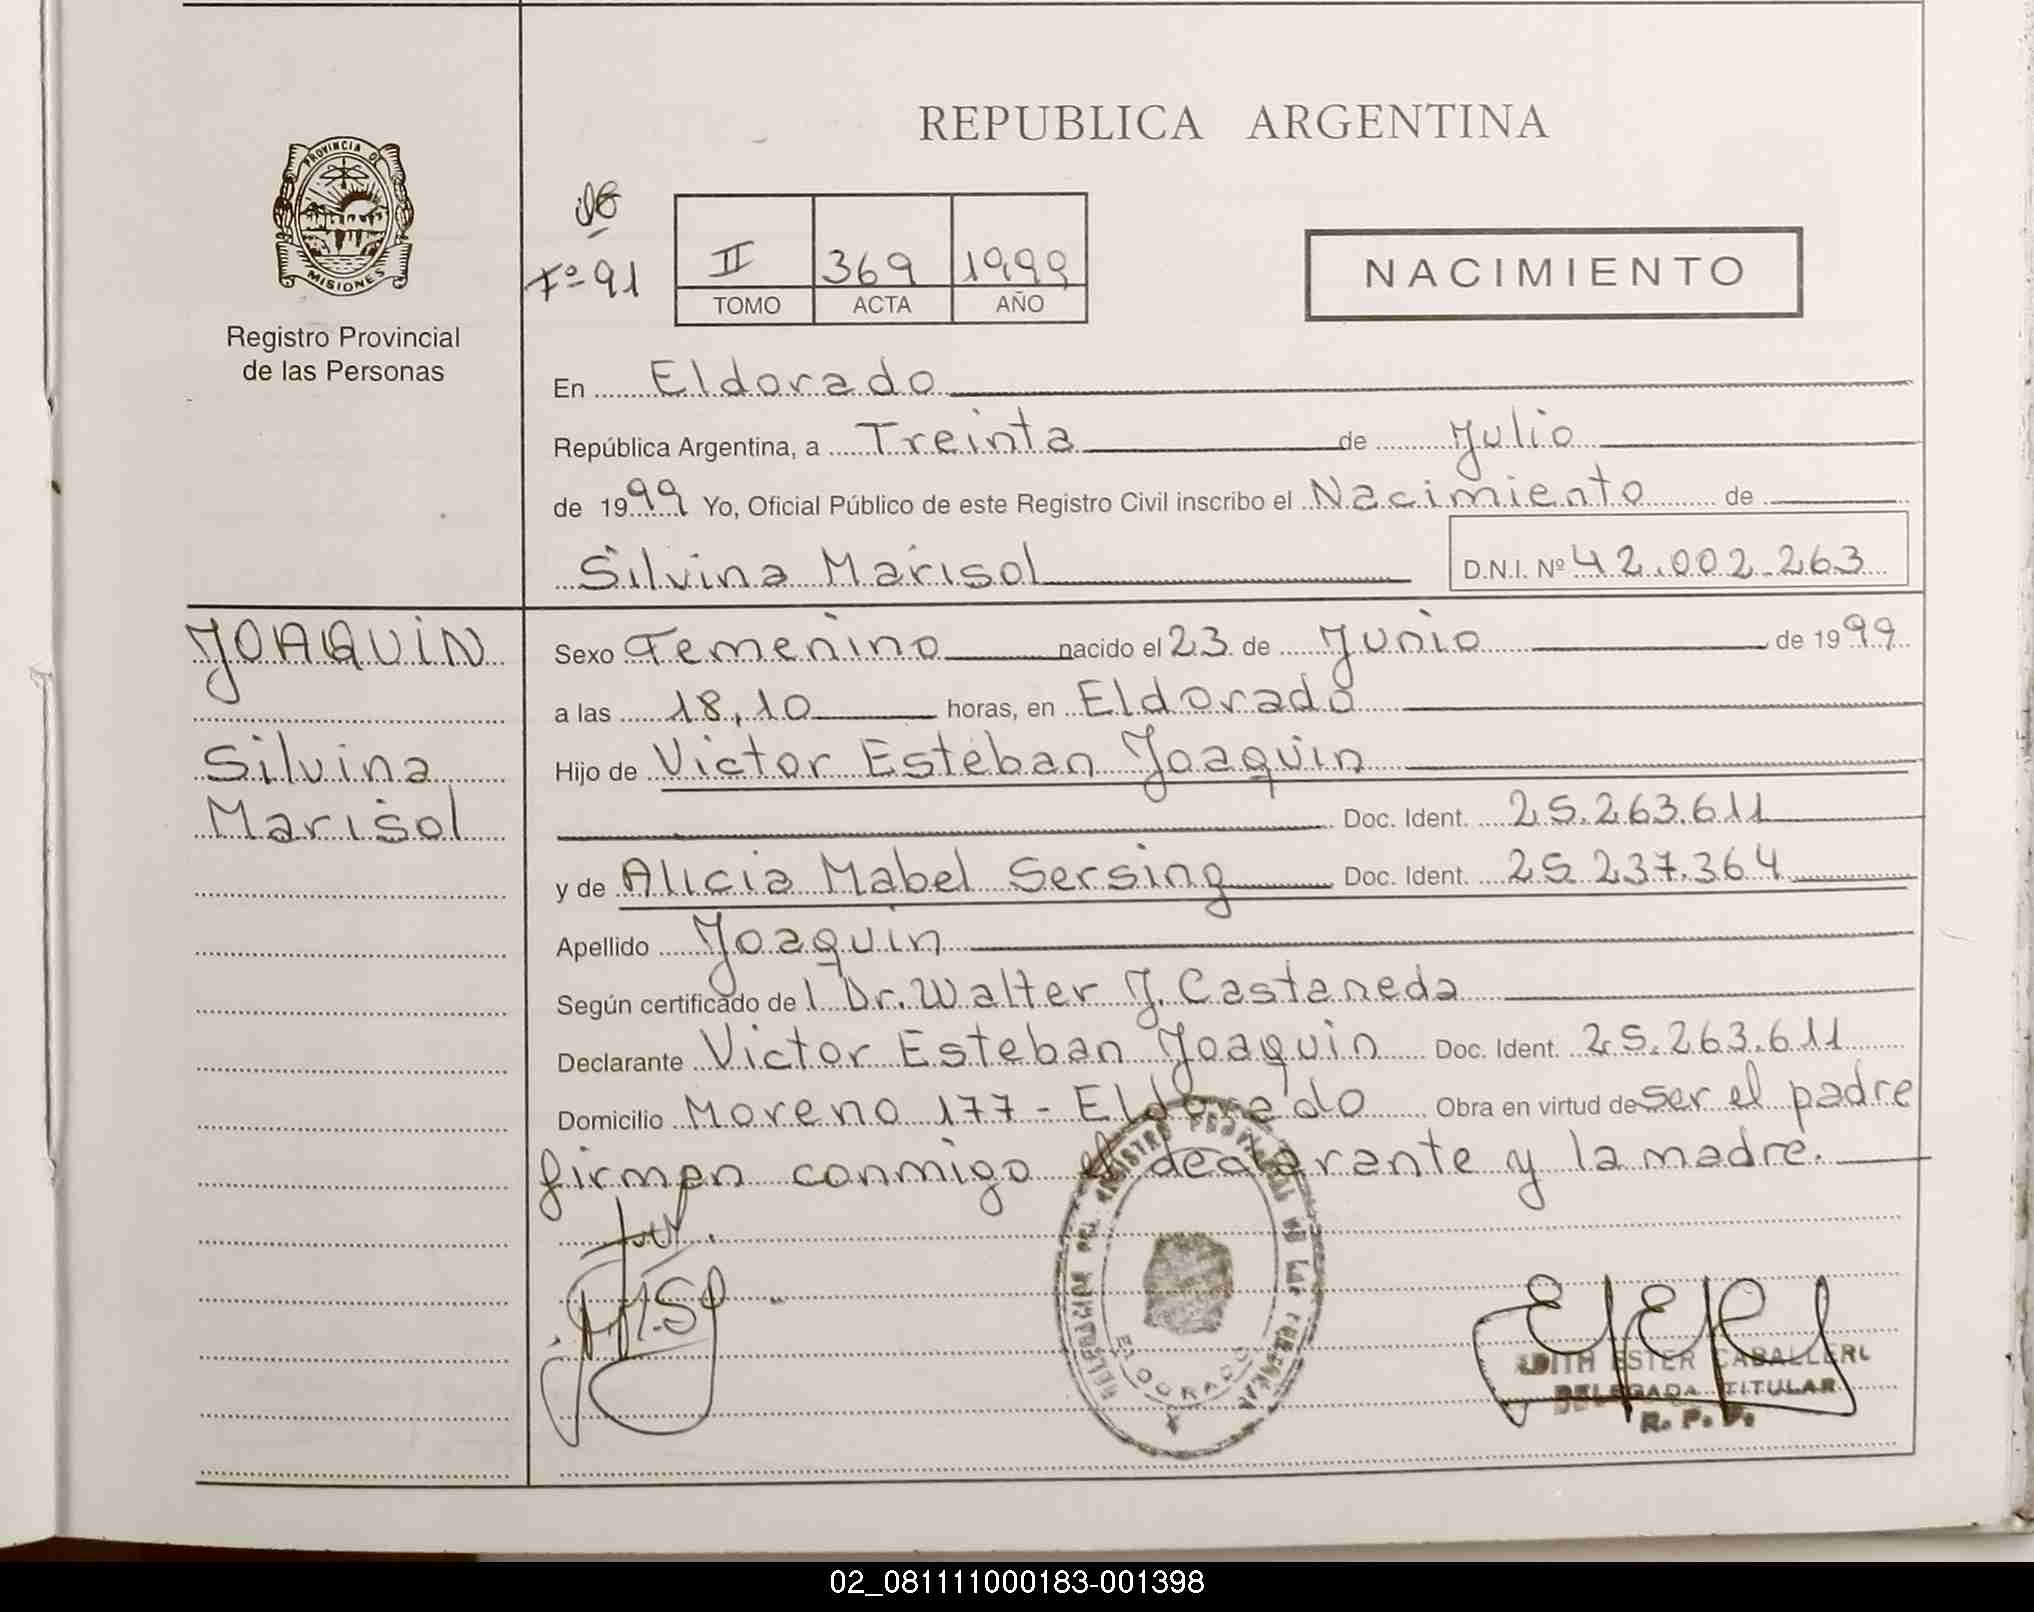 REPUBLICA ARGENTINA
PROVINCIA DE
MISIONES
Registro Provincial
de las Personas
Fº 91
II 369 1999
TOMO ACTA AÑO
NACIMIENTO
En Eldorado
República Argentina, a Treinta de Julio
de 1999 Yo, Oficial Público de este Registro Civil inscribo el Nacimiento de
Silvina Marisol D.N.I. Nº 42.002.263
JOAQUIN
Silvina
Marisol
Sexo Femenino nacido el 23 de Junio de 1999
a las 18,10 horas, en Eldorado
Hijo de Victor Esteban Joaquin
Doc. Ident. 25.263.611
y de Alicia Mabel Sersing Doc. Ident. 25.237.364
Apellido Joaquin
Según certificado del Dr. Walter J. Castaneda
Declarante Victor Esteban Joaquin Doc. Ident. 25.263.611
Domicilio Moreno 177 - Eldorado Obra en virtud de ser el padre
firman conmigo el declarante y la madre.
ELDORADO
EDITH ESTER CABALLERO
DELEGADA TITULAR
R. P. P.
02_081111000183-001398